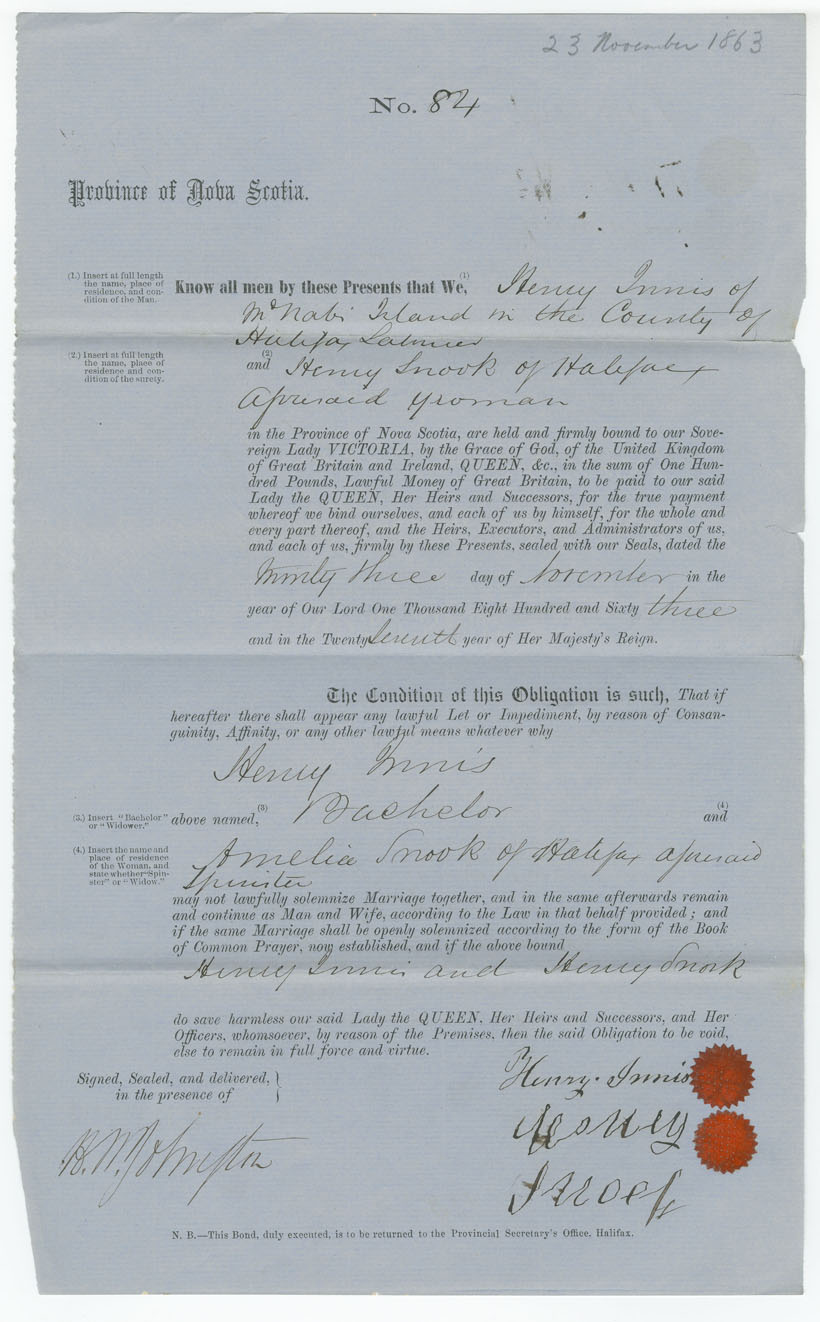 23 November 1863
No. 84
Province of Nova Scotia.
(1.) Insert at full length
the name, place of
residence, and con-
dition of the Man.
Know all men by these Presents that We,(1) Henry Innis of
McNabs Island in the County of
Halifax Laborer
(2.) Insert at full length
the name, place of
residence and con-
dition of the surety.
and(2) Henry Snook of Halifax
aforesaid yeoman
in the Province of Nova Scotia, are held and firmly bound to our Sove-
reign Lady VICTORIA, by the Grace of God, of the United Kingdom
of Great Britain and Ireland, QUEEN, &c., in the sum of One Hun-
dred Pounds, Lawful Money of Great Britain, to be paid to our said
Lady the QUEEN, Her Heirs and Successors, for the true payment
whereof we bind ourselves, and each of us by himself, for the whole and
every part thereof, and the Heirs, Executors, and Administrators of us,
and each of us, firmly by these Presents, sealed with our Seals, dated the
Twenty three day of November in the
year of Our Lord One Thousand Eight Hundred and Sixty three
and in the Twenty Seventh year of Her Majesty's Reign.
The Condition of this Obligation is such, That if
hereafter there shall appear any lawful Let or Impediment, by reason of Consan-
guinity, Affinity, or any other lawful means whatever why
Henry Innis
(3.) Insert "Bachelor"
or "Widower."
above named,(3) Bachelor (4) and
(4.) Insert the name and
place of residence
of the Woman, and
state whether "Spin-
ster" or "Widow."
Amelia Snook of Halifax aforesaid
Spinster
may not lawfully solemnize Marriage together, and in the same afterwards remain
and continue as Man and Wife, according to the Law in that behalf provided; and
if the same Marriage shall be openly solemnized according to the form of the Book
of Common Prayer, now established, and if the above bound
Henry Innis and Henry Snook
do save harmless our said Lady the QUEEN, Her Heirs and Successors, and Her
Officers, whomsoever, by reason of the Premises, then the said Obligation to be void,
else to remain in full force and virtue.
Signed, Sealed, and delivered,
in the presence of
Henry. Innis
Henry
Snook
Johnston
N. B.—This Bond, duly executed, is to be returned to the Provincial Secretary's Office, Halifax.